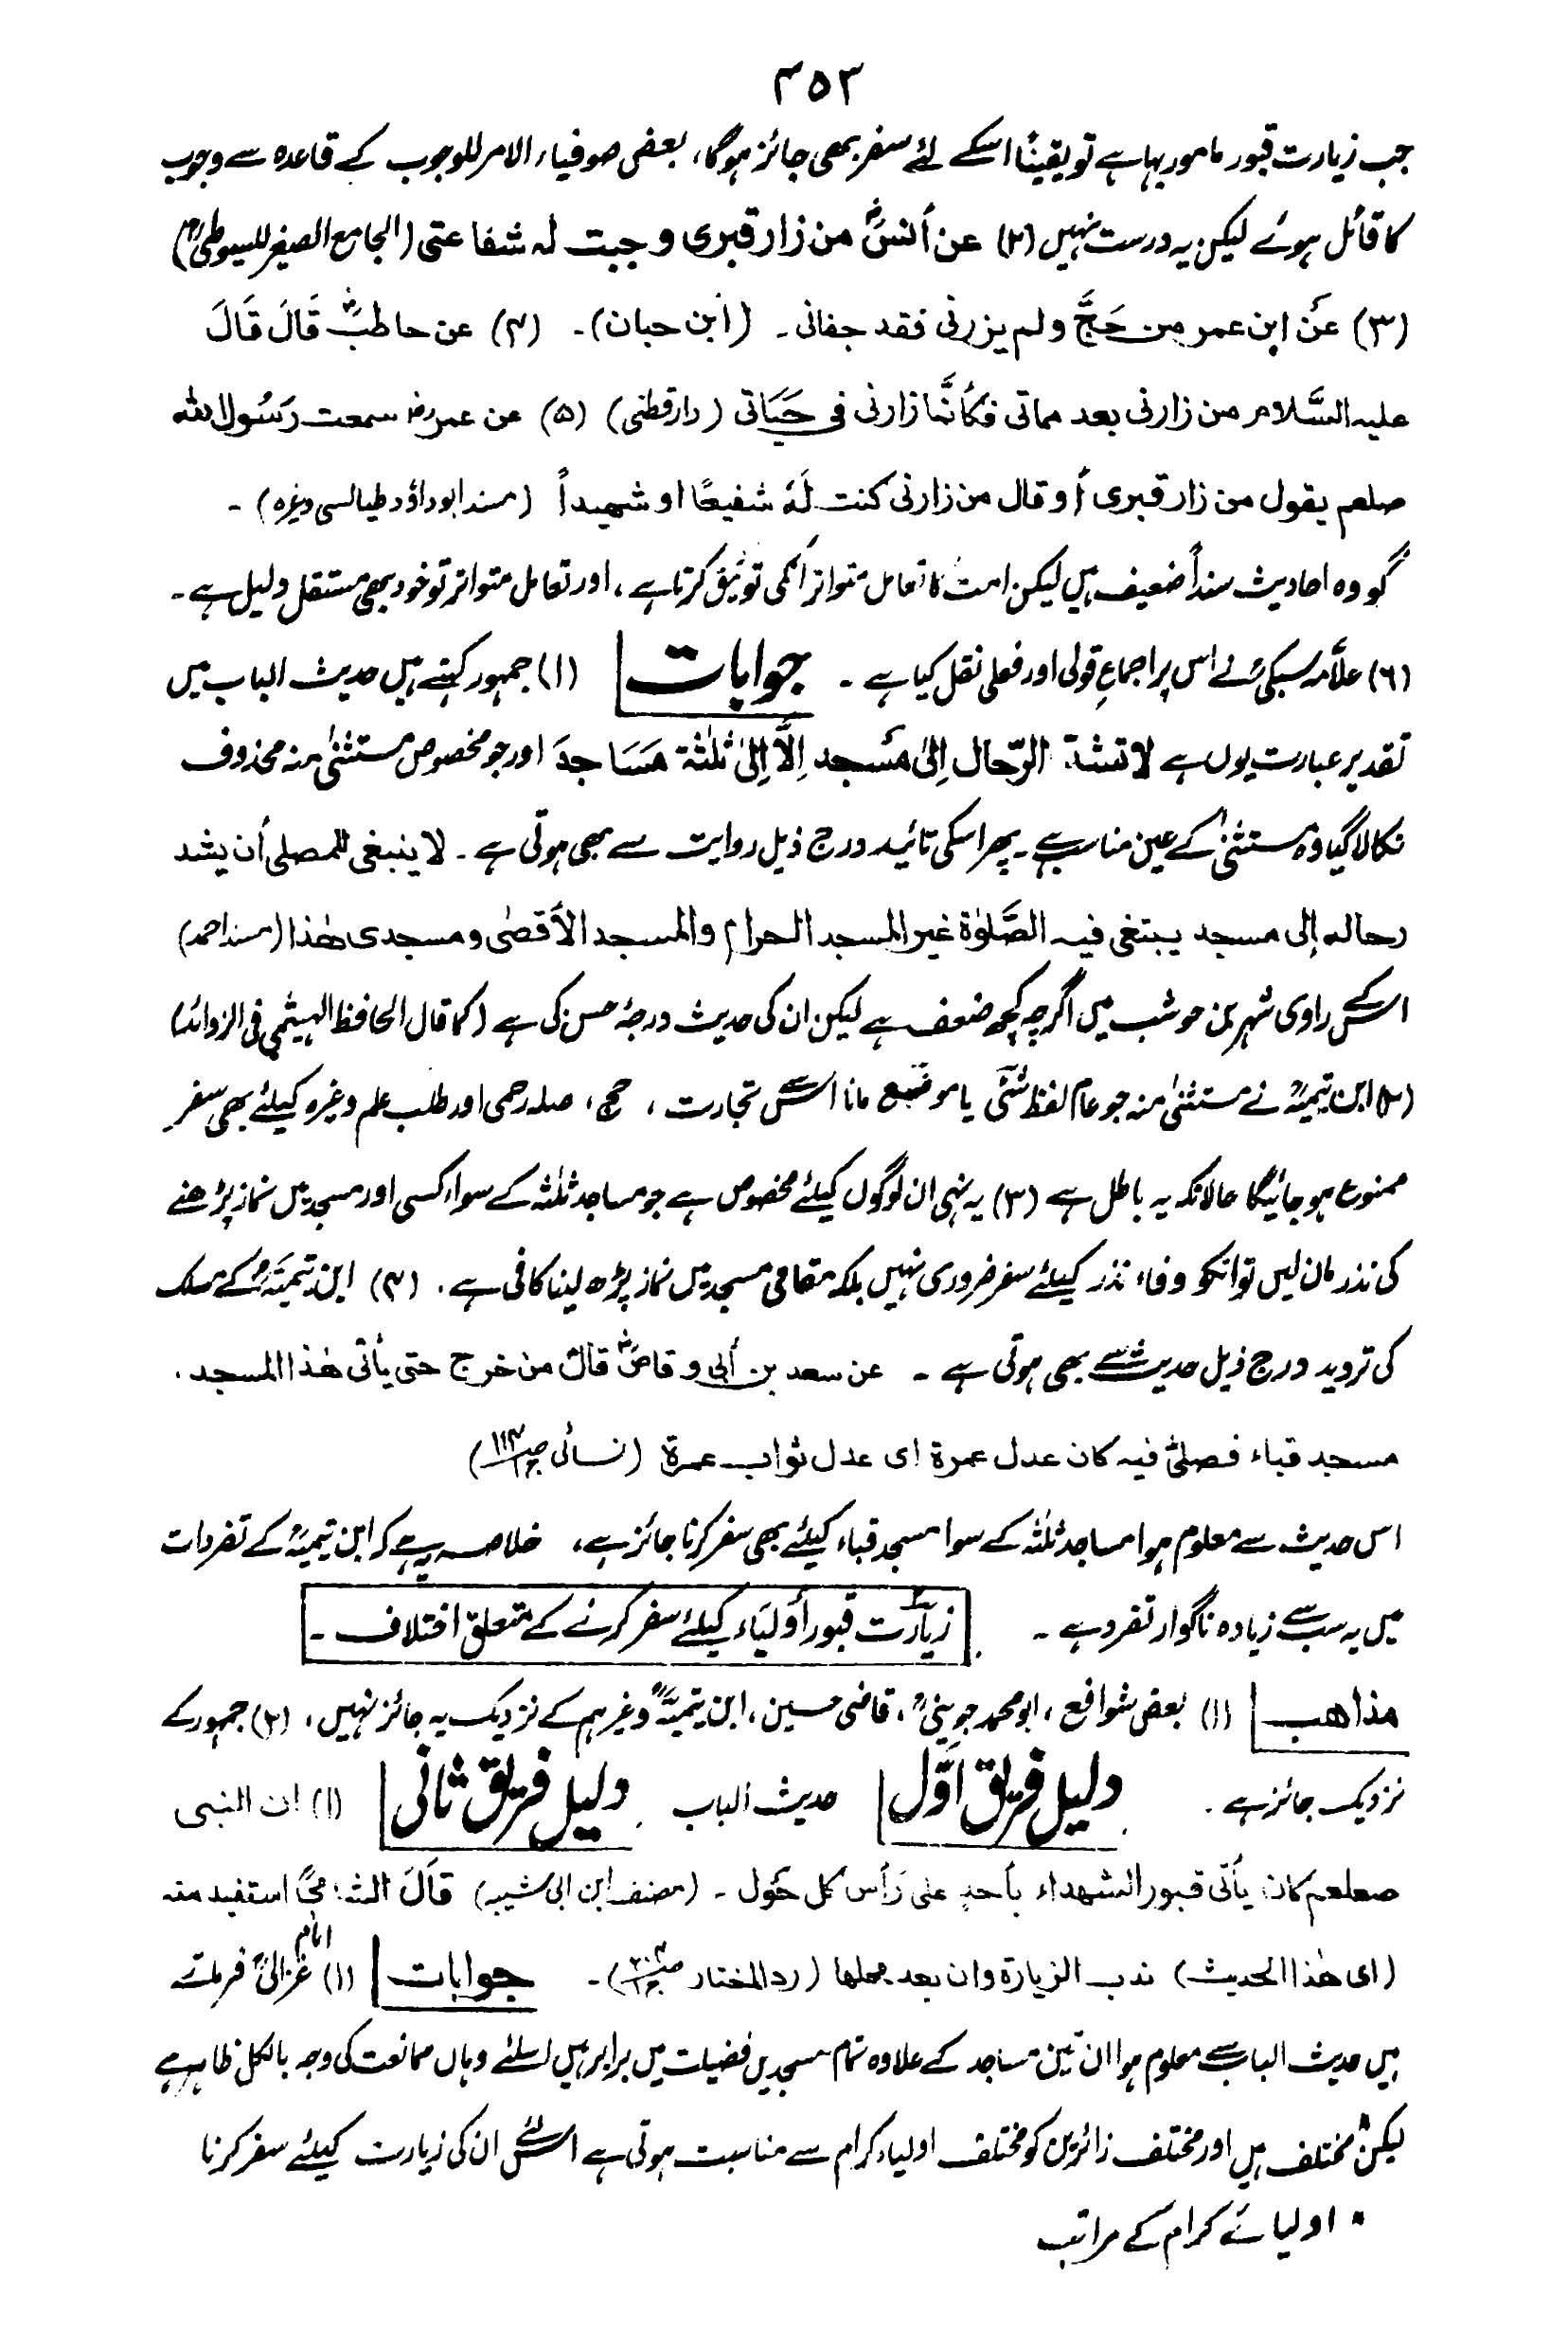 ۳۵۳
جب زیارت قبور مامور بہا ہے تو یقینًا اسکے لئے سفر بھی جائز ہوگا، بعض صوفیاء الامر للوجوب کے قاعدہ سے وجوب
کا قائل ہوئے لیکن یہ درست نہیں (۲) عن أنسؓ من زار قبری وجبت لہ شفاعتی (الجامع الصغیر للسیوطیؒ)
(۳) عن ابن عمر من حَجَّ ولم یزرنی فقد جفانی ۔ (ابن حبان)۔ (۴) عن حاطبؓ قَالَ قَالَ
علیہ السَّلام من زارنی بعد مماتی فکأنَّما زارنی فی حَیَاتی (دارقطنی) (۵) عن عمر رضؓ سمعت رَسُول اللہ
صلعم یقول من زار قبری أو قال من زارنی کنت لَہٗ شفیعًا او شھیداً (مسند ابوداؤد طیالسی وغیرہ) ۔
گو وہ احادیث سنداً ضعیف ہیں لیکن امت کا تعامل متواتر انکی توثیق کرتا ہے ، اور تعامل متواتر تو خود بھی مستقل دلیل ہے ۔
(۶) علاّمہ سبکیؒ نے اس پر اجماعِ قولی اور فعلی نقل کیا ہے ۔ جوابات (۱) جمہور کہتے ہیں حدیث الباب میں
تقدیر عبارت یوں ہے لا تشدّ الرّحال اِلیٰ مَسجد اِلَّا اِلیٰ ثلٰثۃ مَسَاجدَ اور جو مخصوص مستثنیٰ منہ محذوف
نکالا گیا وہ مستثنیٰ کے عین مناسب ہے ۔ پھر اسکی تائید درج ذیل روایت سے بھی ہوتی ہے ۔ لا ینبغی للمصلی أن یشد
رحالہ إلی مسجد یبتغی فیہ الصَّلوٰۃ غیر المسجد الحرام والمسجد الأقصٰی ومسجدی ھٰذا (مسند احمد)
اسکے راوی شہر بن حوشب میں اگرچہ کچھ ضعف ہے لیکن ان کی حدیث درجۂ حسن کی ہے (کما قال الحافظ الہیثمی فی الزوائد)
(۲) ابن تیمیہؒ نے مستثنیٰ منہ جو عام لفظ شئی یا موضع مانا اس سے تجارت ، حج ، صلہ رحمی اور طلب علم وغیرہ کیلئے بھی سفر
ممنوع ہو جائیگا حالانکہ یہ باطل ہے (۳) یہ نہی ان لوگوں کیلئے مخصوص ہے جو مساجد ثلٰثہ کے سواء کسی اور مسجد میں نماز پڑھنے
کی نذر مان لیں تو انکو وفاء نذر کیلئے سفر ضروری نہیں بلکہ مقامی مسجد میں نماز پڑھ لینا کافی ہے ۔ (۴) ابن تیمیہؒ کے مسلک
کی تردید درج ذیل حدیث سے بھی ہوتی ہے ۔ عن سعد بن أبی وقاصؓ قالؒ من خرج حتی یأتی ھٰذا المسجد ،
مسجد قباء فصلیّٰ فیہ کان عدل عمرۃ ای عدل ثواب عمرۃ (نسائی ص۱۱۴ ج۱)
اس حدیث سے معلوم ہوا مساجد ثلٰثہ کے سوا مسجد قباء کیلئے بھی سفر کرنا جائز ہے ، خلاصہ یہ ہے کہ ابن تیمیہؒ کے تفردات
میں یہ سب سے زیادہ ناگوار تفرد ہے ۔ زیارت قبور أولیَاء کیلئے سفر کرنے کے متعلق اختلاف ۔
مذاھب (۱) بعض شوافع ، ابو محمد جوینیؒ ، قاضی حسین ، ابن تیمیہؒ وغیرہم کے نزدیک یہ جائز نہیں ، (۲) جمہور کے
نزدیک جائز ہے ۔ دلیل فریق اوّل حدیث الباب ۔ دلیل فریق ثانی (۱) ان النبی
صلعم کان یأتی قبور الشھداء بأحدٍ علی رَأس کل حَول ۔ (مصنف ابن ابی شیبہ) قَالَ الشامیؒ استفید منہ
(ای ھٰذا الحدیث) ندب الزیارۃ وان بعد محلھا (رد المختار) ۔ جوابات (۱) امام غزالیؒ فرماتے
ہیں حدیث الباب سے معلوم ہوا ان تین مساجد کے علاوہ تمام مسجدیں فضیلت میں برابر ہیں اسلئے وہاں ممانعت کی وجہ بالکل ظاہر ہے
لیکن * مختلف ہیں اور مختلف زائرین کو مختلف اولیاء کرام سے مناسبت ہوتی ہے اس لئے ان کی زیارت کیلئے سفر کرنا
* اولیائے کرام کے مراتب